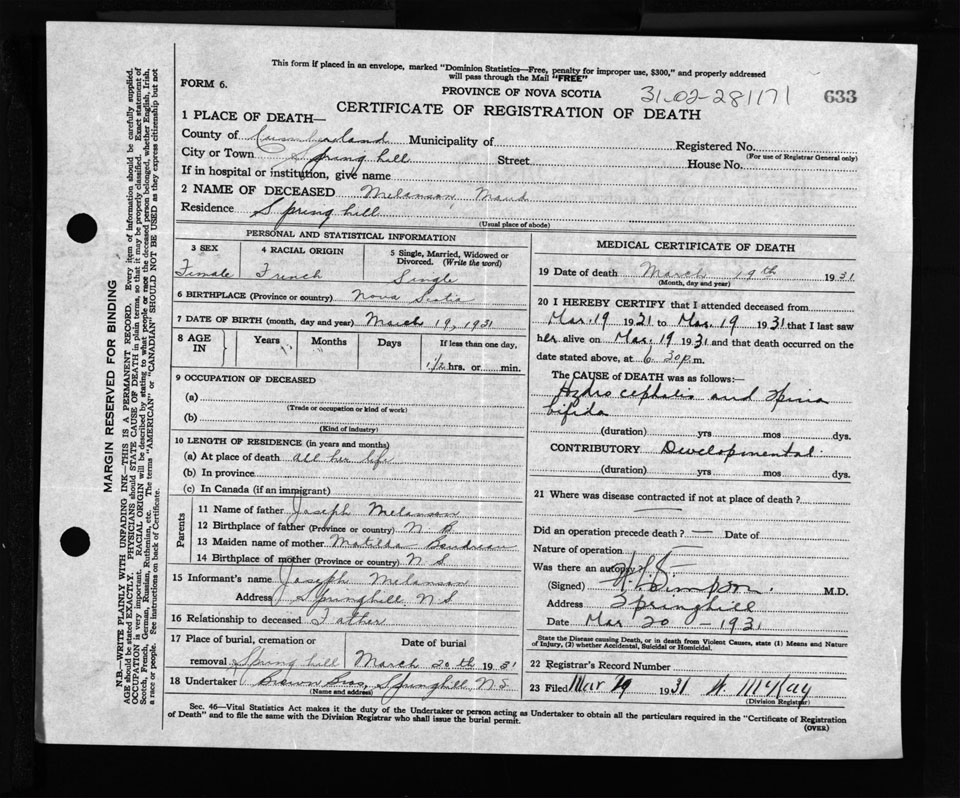 This form if placed in an envelope, marked "Dominion Statistics—Free, penalty for improper use, $300," and properly addressed
will pass through the Mail "FREE"
FORM 6.
PROVINCE OF NOVA SCOTIA
31-02-281171
633
CERTIFICATE OF REGISTRATION OF DEATH
1 PLACE OF DEATH—
County of Cumberland Municipality of Registered No.
(For use of Registrar General only)
City or Town Spring hill Street House No.
If in hospital or institution, give name
2 NAME OF DECEASED Melanson, Maud
Residence Spring hill
(Usual place of abode)
PERSONAL AND STATISTICAL INFORMATION
3 SEX 4 RACIAL ORIGIN 5 Single, Married, Widowed or
Divorced. (Write the word)
Female French Single
6 BIRTHPLACE (Province or country) Nova Scotia
7 DATE OF BIRTH (month, day and year) March 19, 1931
8 AGE IN Years Months Days If less than one day,
1/2 hrs. or min.
9 OCCUPATION OF DECEASED
(a)
(Trade or occupation or kind of work)
(b)
(Kind of industry)
10 LENGTH OF RESIDENCE (in years and months)
(a) At place of death all her life
(b) In province
(c) In Canada (if an immigrant)
Parents
11 Name of father Joseph Melanson
12 Birthplace of father (Province or country) N. B
13 Maiden name of mother Matilda Boudreau
14 Birthplace of mother (Province or country) N. S
15 Informant's name Joseph Melanson
Address Springhill N.S
16 Relationship to deceased Father
17 Place of burial, cremation or Date of burial
removal Spring hill March 20th 1931
18 Undertaker Brown Bros, Springhill N.S
(Name and address)
MEDICAL CERTIFICATE OF DEATH
19 Date of death March 19th 1931
(Month, day and year)
20 I HEREBY CERTIFY that I attended deceased from
Mar. 19 1931 to Mar. 19 1931 that I last saw
her alive on Mar. 19 1931 and that death occurred on the
date stated above, at 6 30 p.m.
The CAUSE of DEATH was as follows:—
Hydrocephalis and Spina
bifida
(duration) yrs mos dys.
CONTRIBUTORY Developmental
(duration) yrs mos dys.
21 Where was disease contracted if not at place of death?
Did an operation precede death? — Date of
Nature of operation
Was there an autopsy
(Signed) Simpson M.D.
Address Springhill
Date Mar 20 - 1931
State the Disease causing Death, or in death from Violent Causes, state (1) Means and Nature
of Injury, (2) whether Accidental, Suicidal or Homicidal.
22 Registrar's Record Number
23 Filed Mar 1931 W. McKay
(Division Registrar)
Sec. 46—Vital Statistics Act makes it the duty of the Undertaker or person acting as Undertaker to obtain all the particulars required in the "Certificate of Registration
of Death" and to file the same with the Division Registrar who shall issue the burial permit.
(OVER)
MARGIN RESERVED FOR BINDING
N.B.—WRITE PLAINLY WITH UNFADING INK—THIS IS A PERMANENT RECORD. Every item of information should be carefully supplied.
AGE should be stated EXACTLY. PHYSICIANS should STATE CAUSE OF DEATH in plain terms, so that it may be properly classified. Exact statement of
OCCUPATION is very important. RACIAL ORIGIN will be described by stating to what people or race the deceased person belonged, whether English, Irish,
Scotch, French, German, Russian, Ruthenian, etc. The terms "AMERICAN" or "CANADIAN" SHOULD NOT BE USED as they express citizenship but not
a race or people. See instructions on back of Certificate.